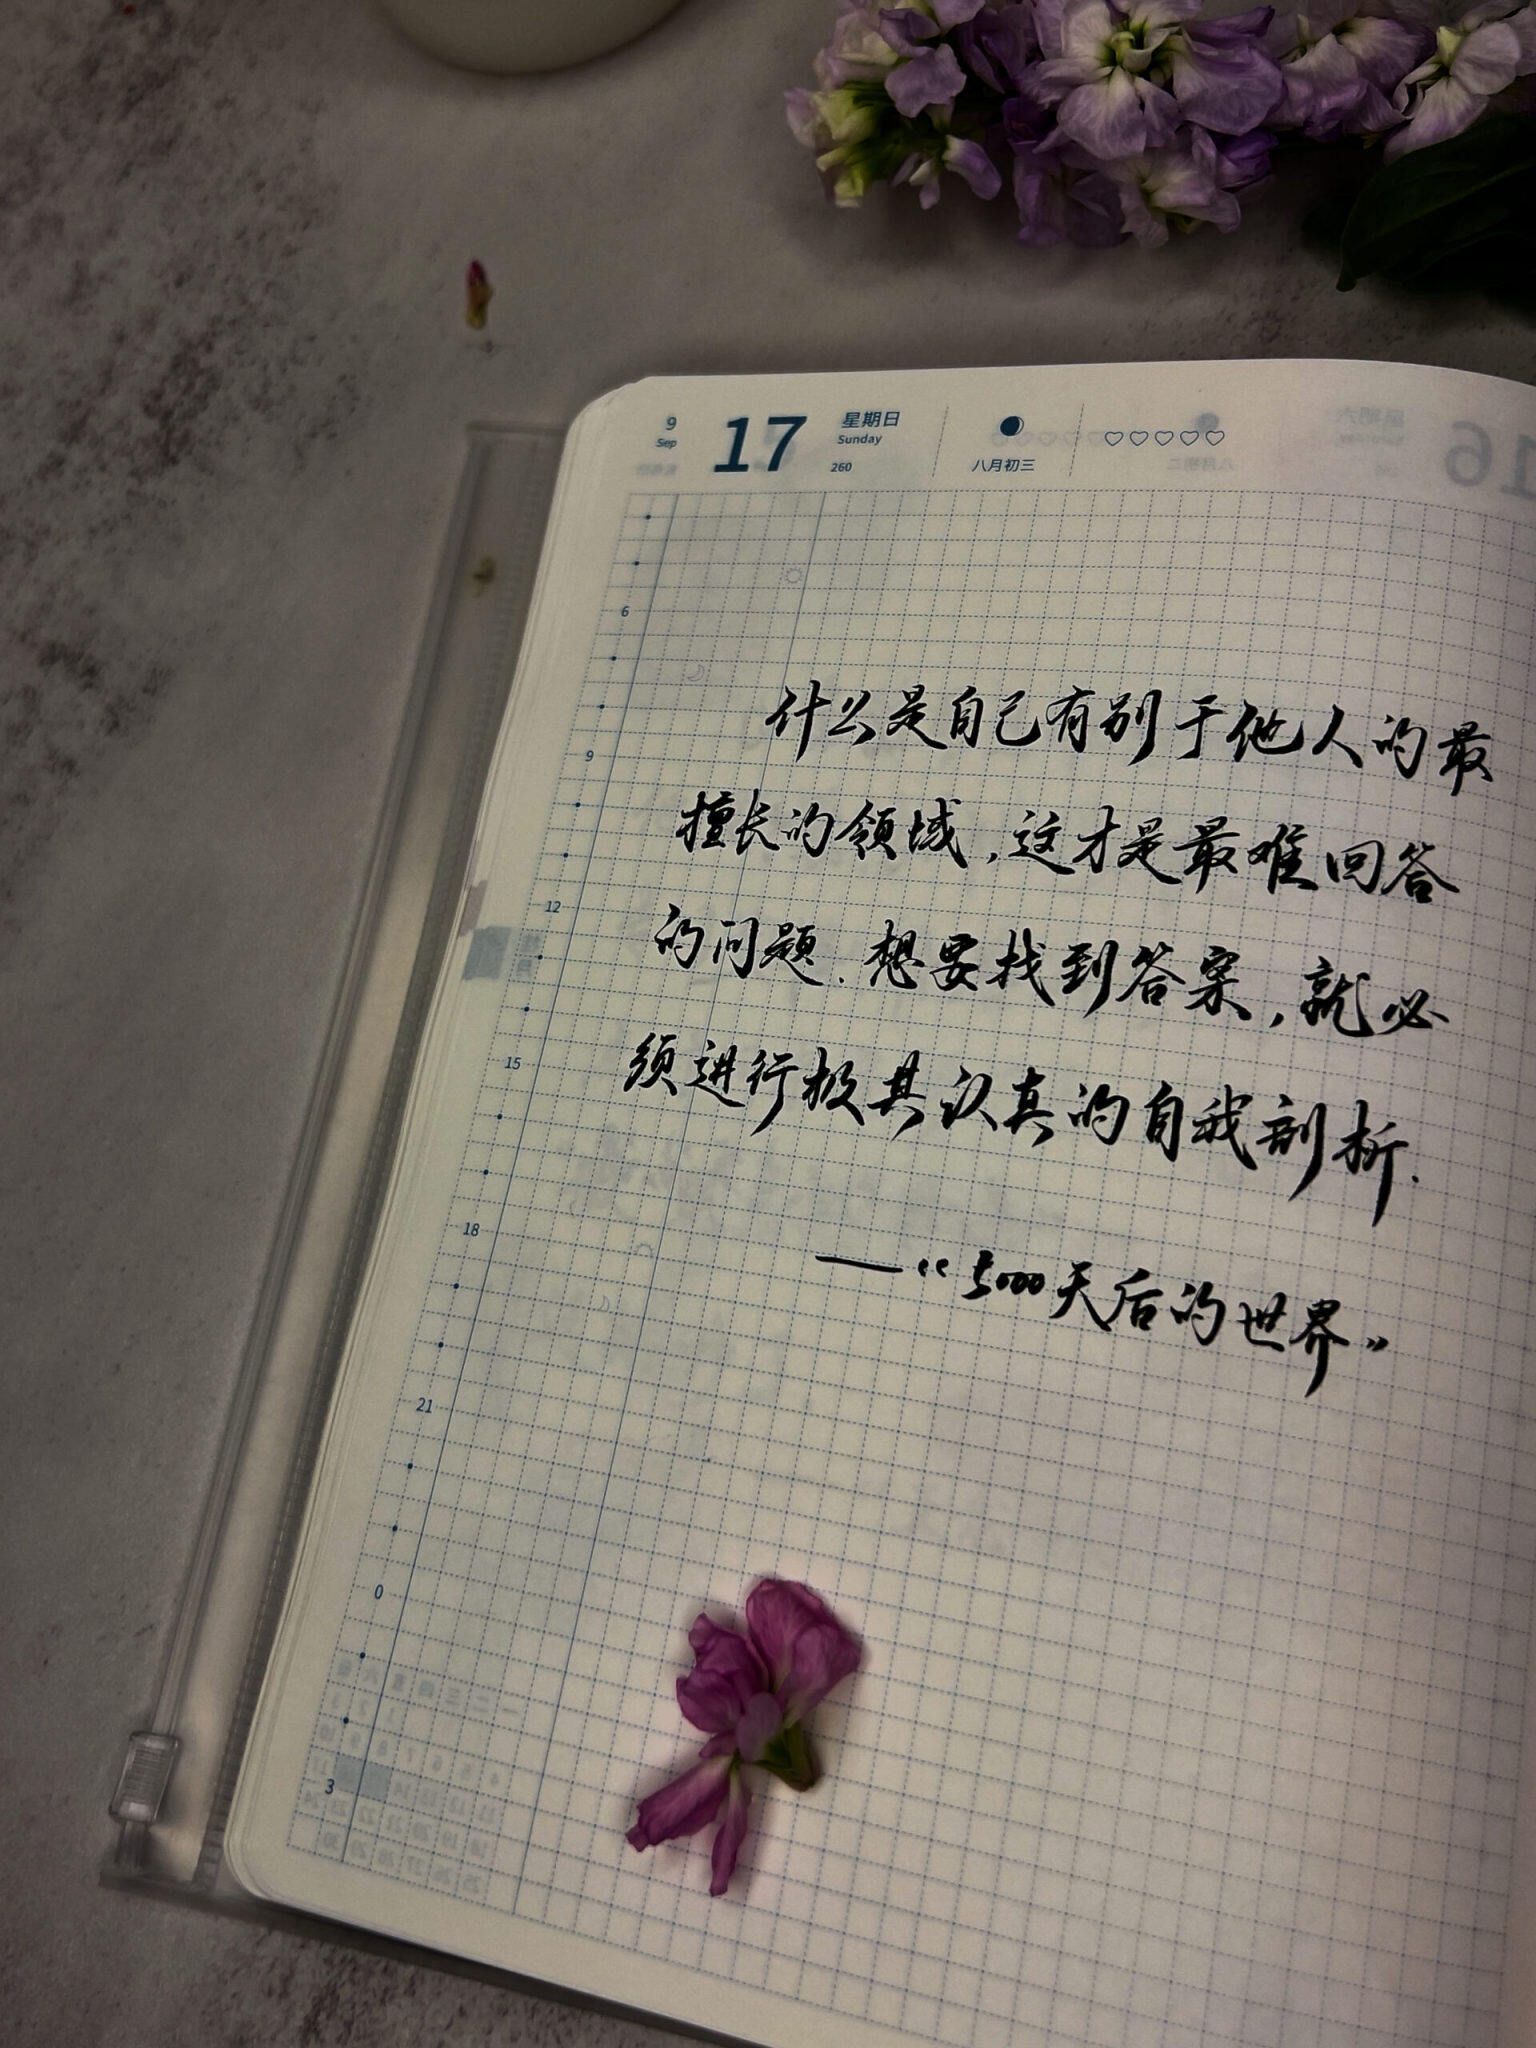 9 17 星期日 八月初三 ♡♡♡♡♡
Sep Sunday
260
6
9
12
15
18
21
0
3
什么是自己有别于他人的最
擅长的领域，这才是最难回答
的问题.想要找到答案，就必
须进行极其认真的自我剖析.
——“5000天后的世界”
16